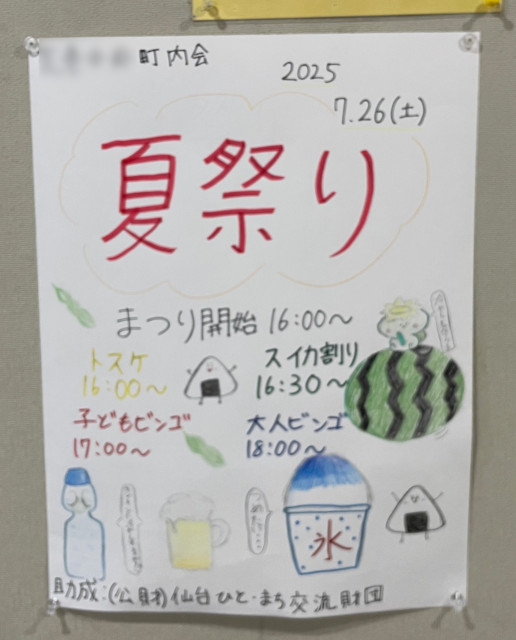 町内会
2025
7.26(土)
夏祭り
まつり開始 16:00〜
トスケ
16:00〜
スイカ割り
16:30〜
子どもビンゴ
17:00〜
大人ビンゴ
18:00〜
氷
助成:(公財)仙台ひと・まち交流財団